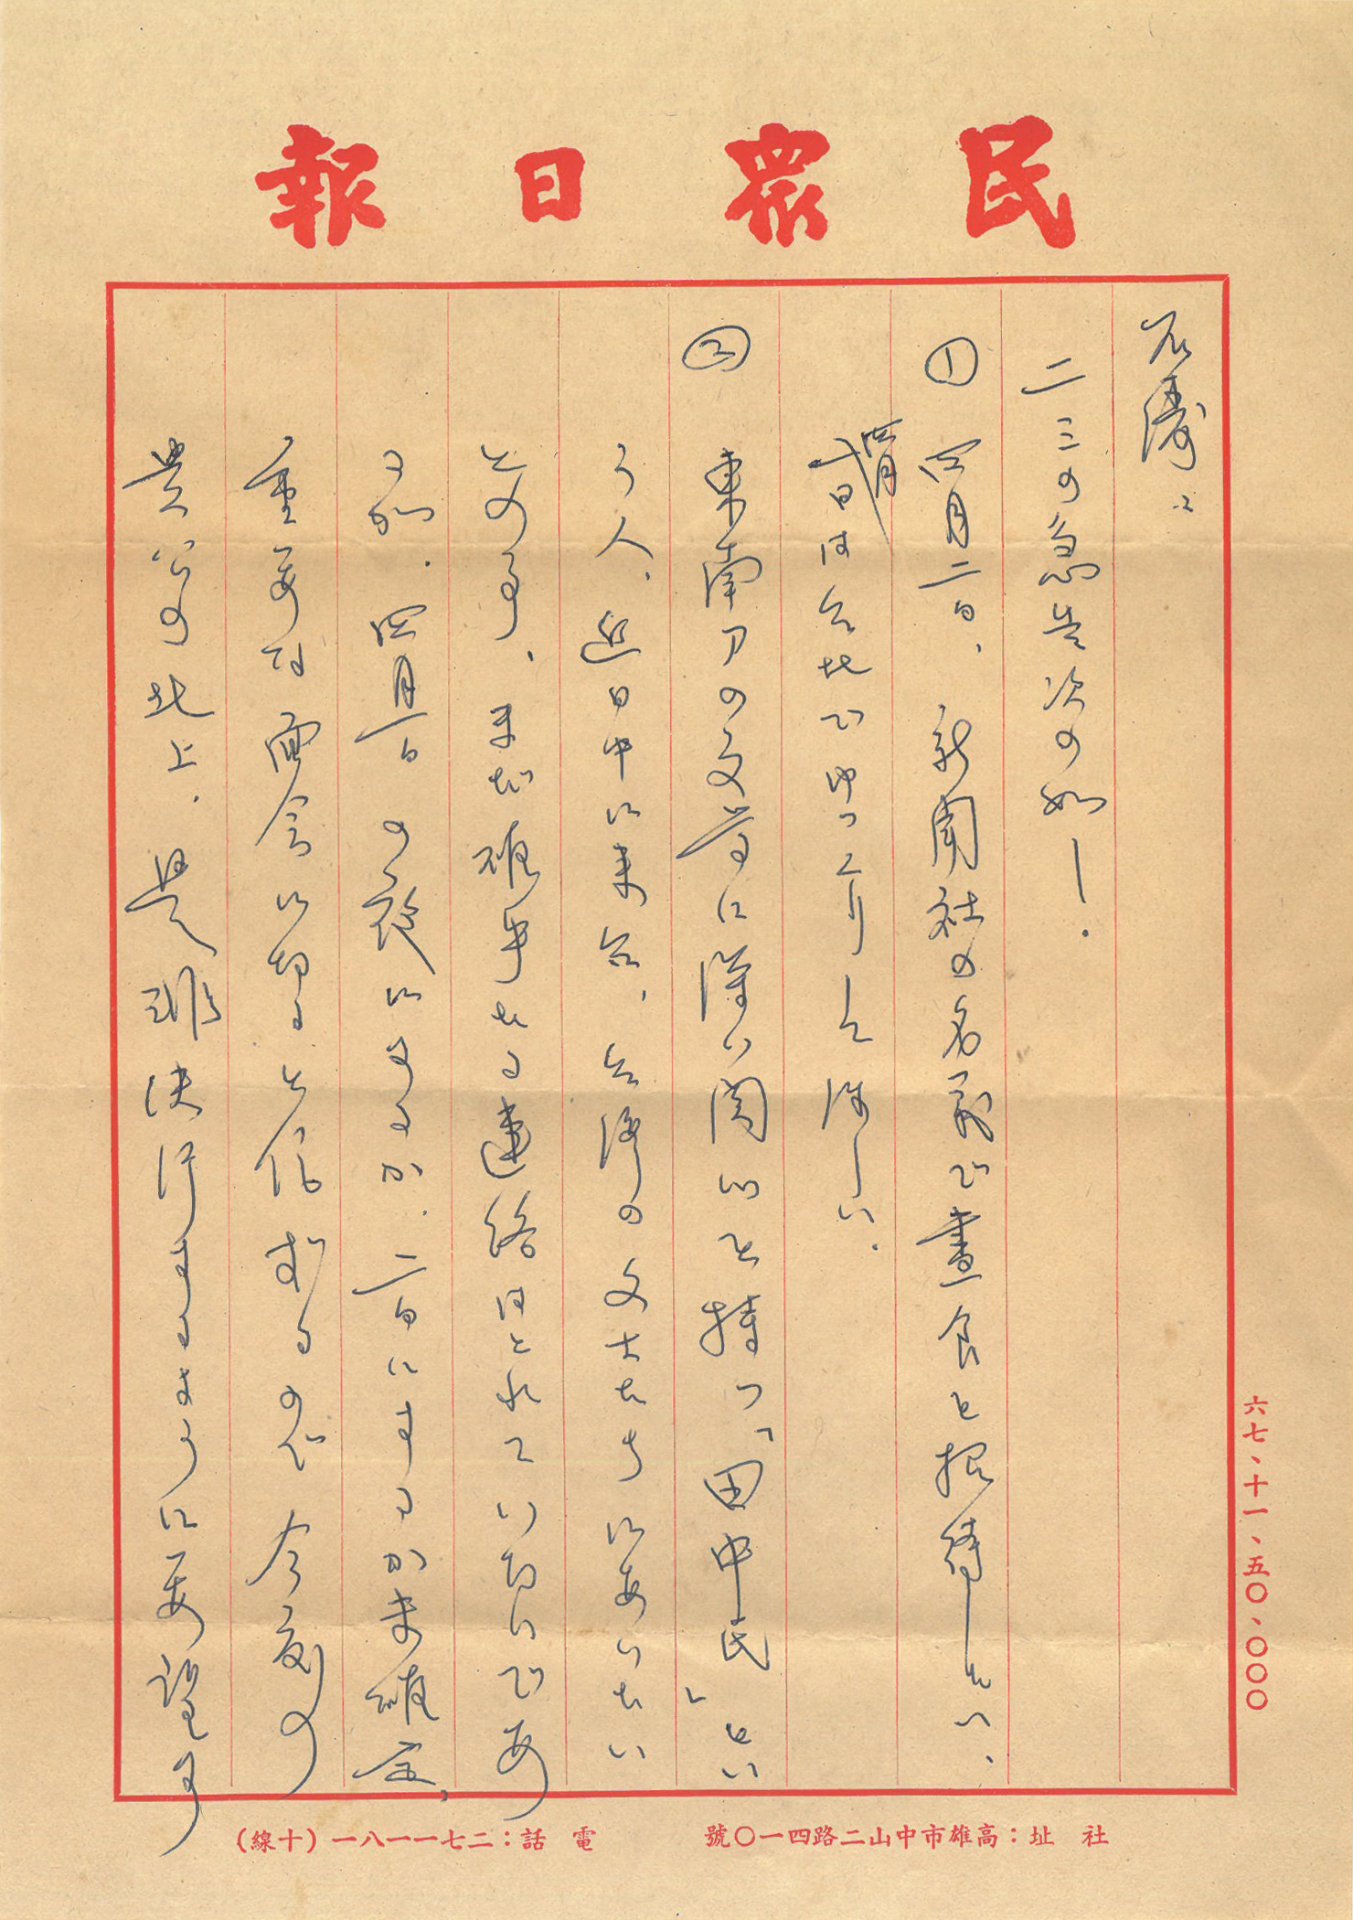 民眾日報
石濤：
二三の急告次の如し．
① 四月二日、新聞社の名義で晝食を招待したい、
四月一日は台北でゆっくりして欲しい．
② 東南アの文学に深い関心を持つ「田中氏」とい
う人、近日中に来台、台湾の文士たちにあいたい
との事、まだ確実なる連絡はとれていないであ
るが．四月一日の夜にするか．二日にするか未確定、
重要な面会に切ると信ずるので今度の
貴公の北上．是非決行するように要望す
六七、十一、五〇、〇〇〇
社　址：高雄市中山二路四一〇號
電　話：二七一一八一（十線）